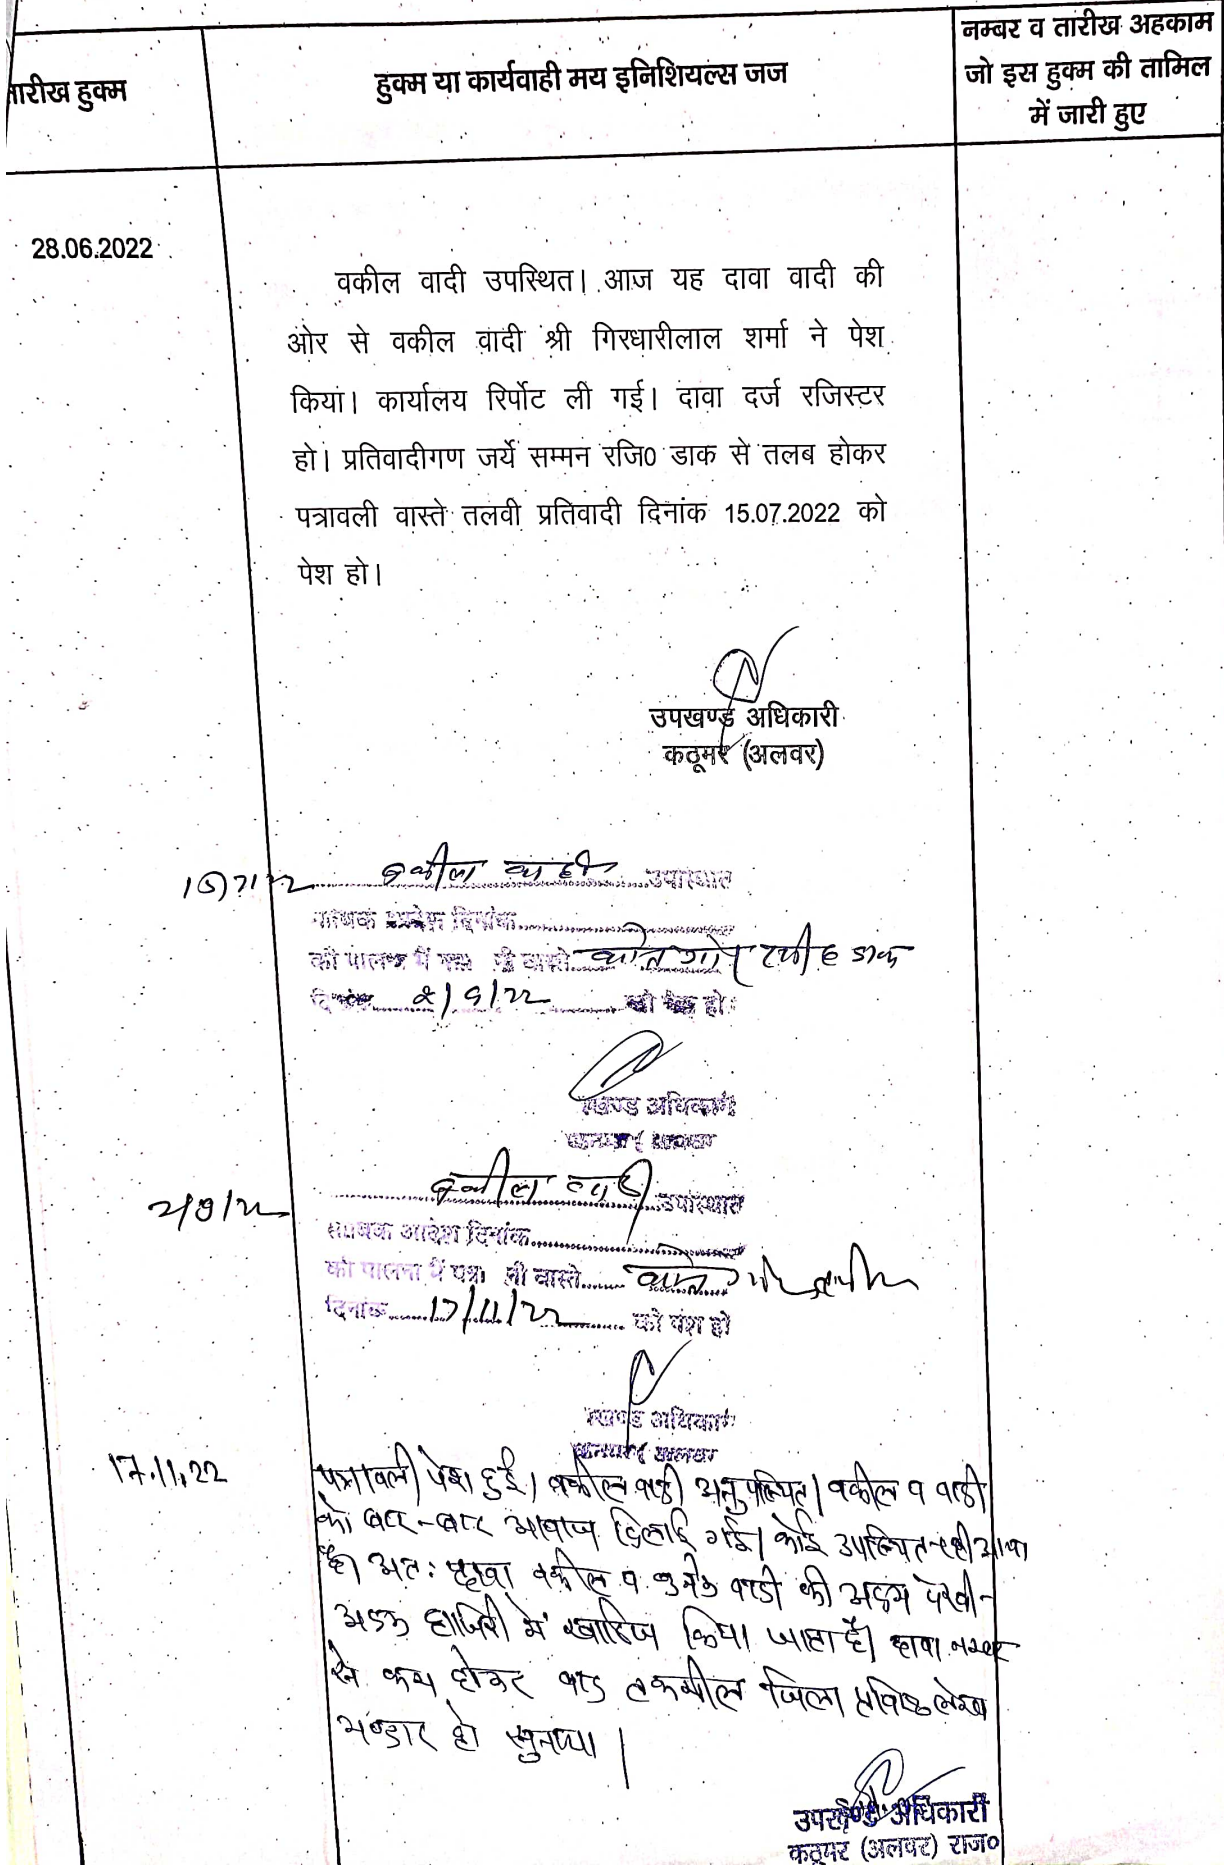 तारीख हुक्म
हुक्म या कार्यवाही मय इनिशियल्स जज
नम्बर व तारीख अहकाम
जो इस हुक्म की तामिल
में जारी हुए
28.06.2022
वकील वादी उपस्थित। आज यह दावा वादी की
ओर से वकील वादी श्री गिरधारीलाल शर्मा ने पेश
किया। कार्यालय रिर्पोट ली गई। दावा दर्ज रजिस्टर
हो। प्रतिवादीगण जर्ये सम्मन रजि0 डाक से तलब होकर
पत्रावली वास्ते तलवी प्रतिवादी दिनांक 15.07.2022 को
पेश हो।
उपखण्ड अधिकारी
कठूमर (अलवर)
वकील वादी उपस्थित
आदेश दिनांक
की पालना में वास्ते डाक
दिनांक को पेश हो।
खण्ड अधिकारी
वकील वादी उपस्थित
आदेश दिनांक
की पालना में पत्रा ली वास्ते
दिनांक 17/11/22 को पेश हो
खण्ड अधिकारी
अलवर
17.11.22
पत्रावली पेश हुई। वकील वादी अनुपस्थित। वकील व वादी
को बार-बार आवाज दिलाई गई। कोई उपस्थित नही आया
है। अतः दावा वकील व वादी की अदम पेरवी-
अदम हाजिरी में खारिज किया जाता है। दावा नम्बर
से कम होकर बाद तकमील जिला लेख
भण्डार हो सुनाया।
उपखण्ड अधिकारी
कठूमर (अलवर) राज०